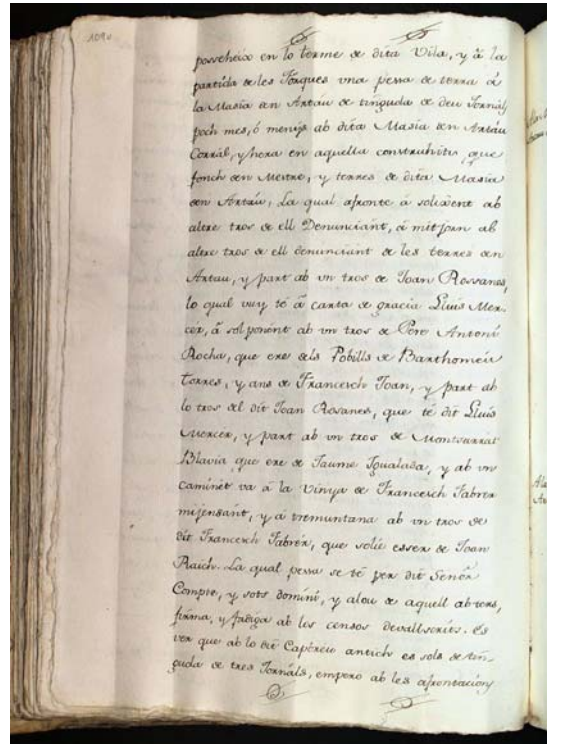 1090
posseheix en lo terme de dita Vila, y à la
partida de les Forques vna pessa de terra à
la Masia den Artau de tinguda de deu Jornals
poch mes, ó menys ab dita Masia den Artau
Corral, y hera en aquella construhits, que
fonch den Mestre, y terres de dita Masia
den Artau, La qual afronta à solixent ab
altre tros de ell Denunciant, à mitjorn ab
altre tros de ell denunciant de les terres den
Artau, y part ab vn tros de Joan Rossanes,
lo qual vuy té à carta de gracia Lluis Mer-
cer, à sol ponent ab vn tros de Pere Antoni
Rocha, que ere dels Pobills de Barthomeu
Torres, y ans de Francesch Joan, y part ab
lo tros del dit Joan Rosanes, que té dit Lluis
Mercer, y part ab vn tros de Montsarrat
Blavia que ere de Jaume Igualada, y ab vn
caminét va à la Vinya de Francesch Fabrer
mijensant, y à tremuntana ab vn tros de
dit Francesch Fabrér, que solie esser de Joan
Raich. La qual pessa se té per dit Señor
Compte, y sots domini, y alou de aquell ab ters,
firma, y fadiga ab los censos devall scrits. Es
ver que ab lo dit Capbreu antich es sols de tin-
guda de tres Jornals, empero ab les afrontacions